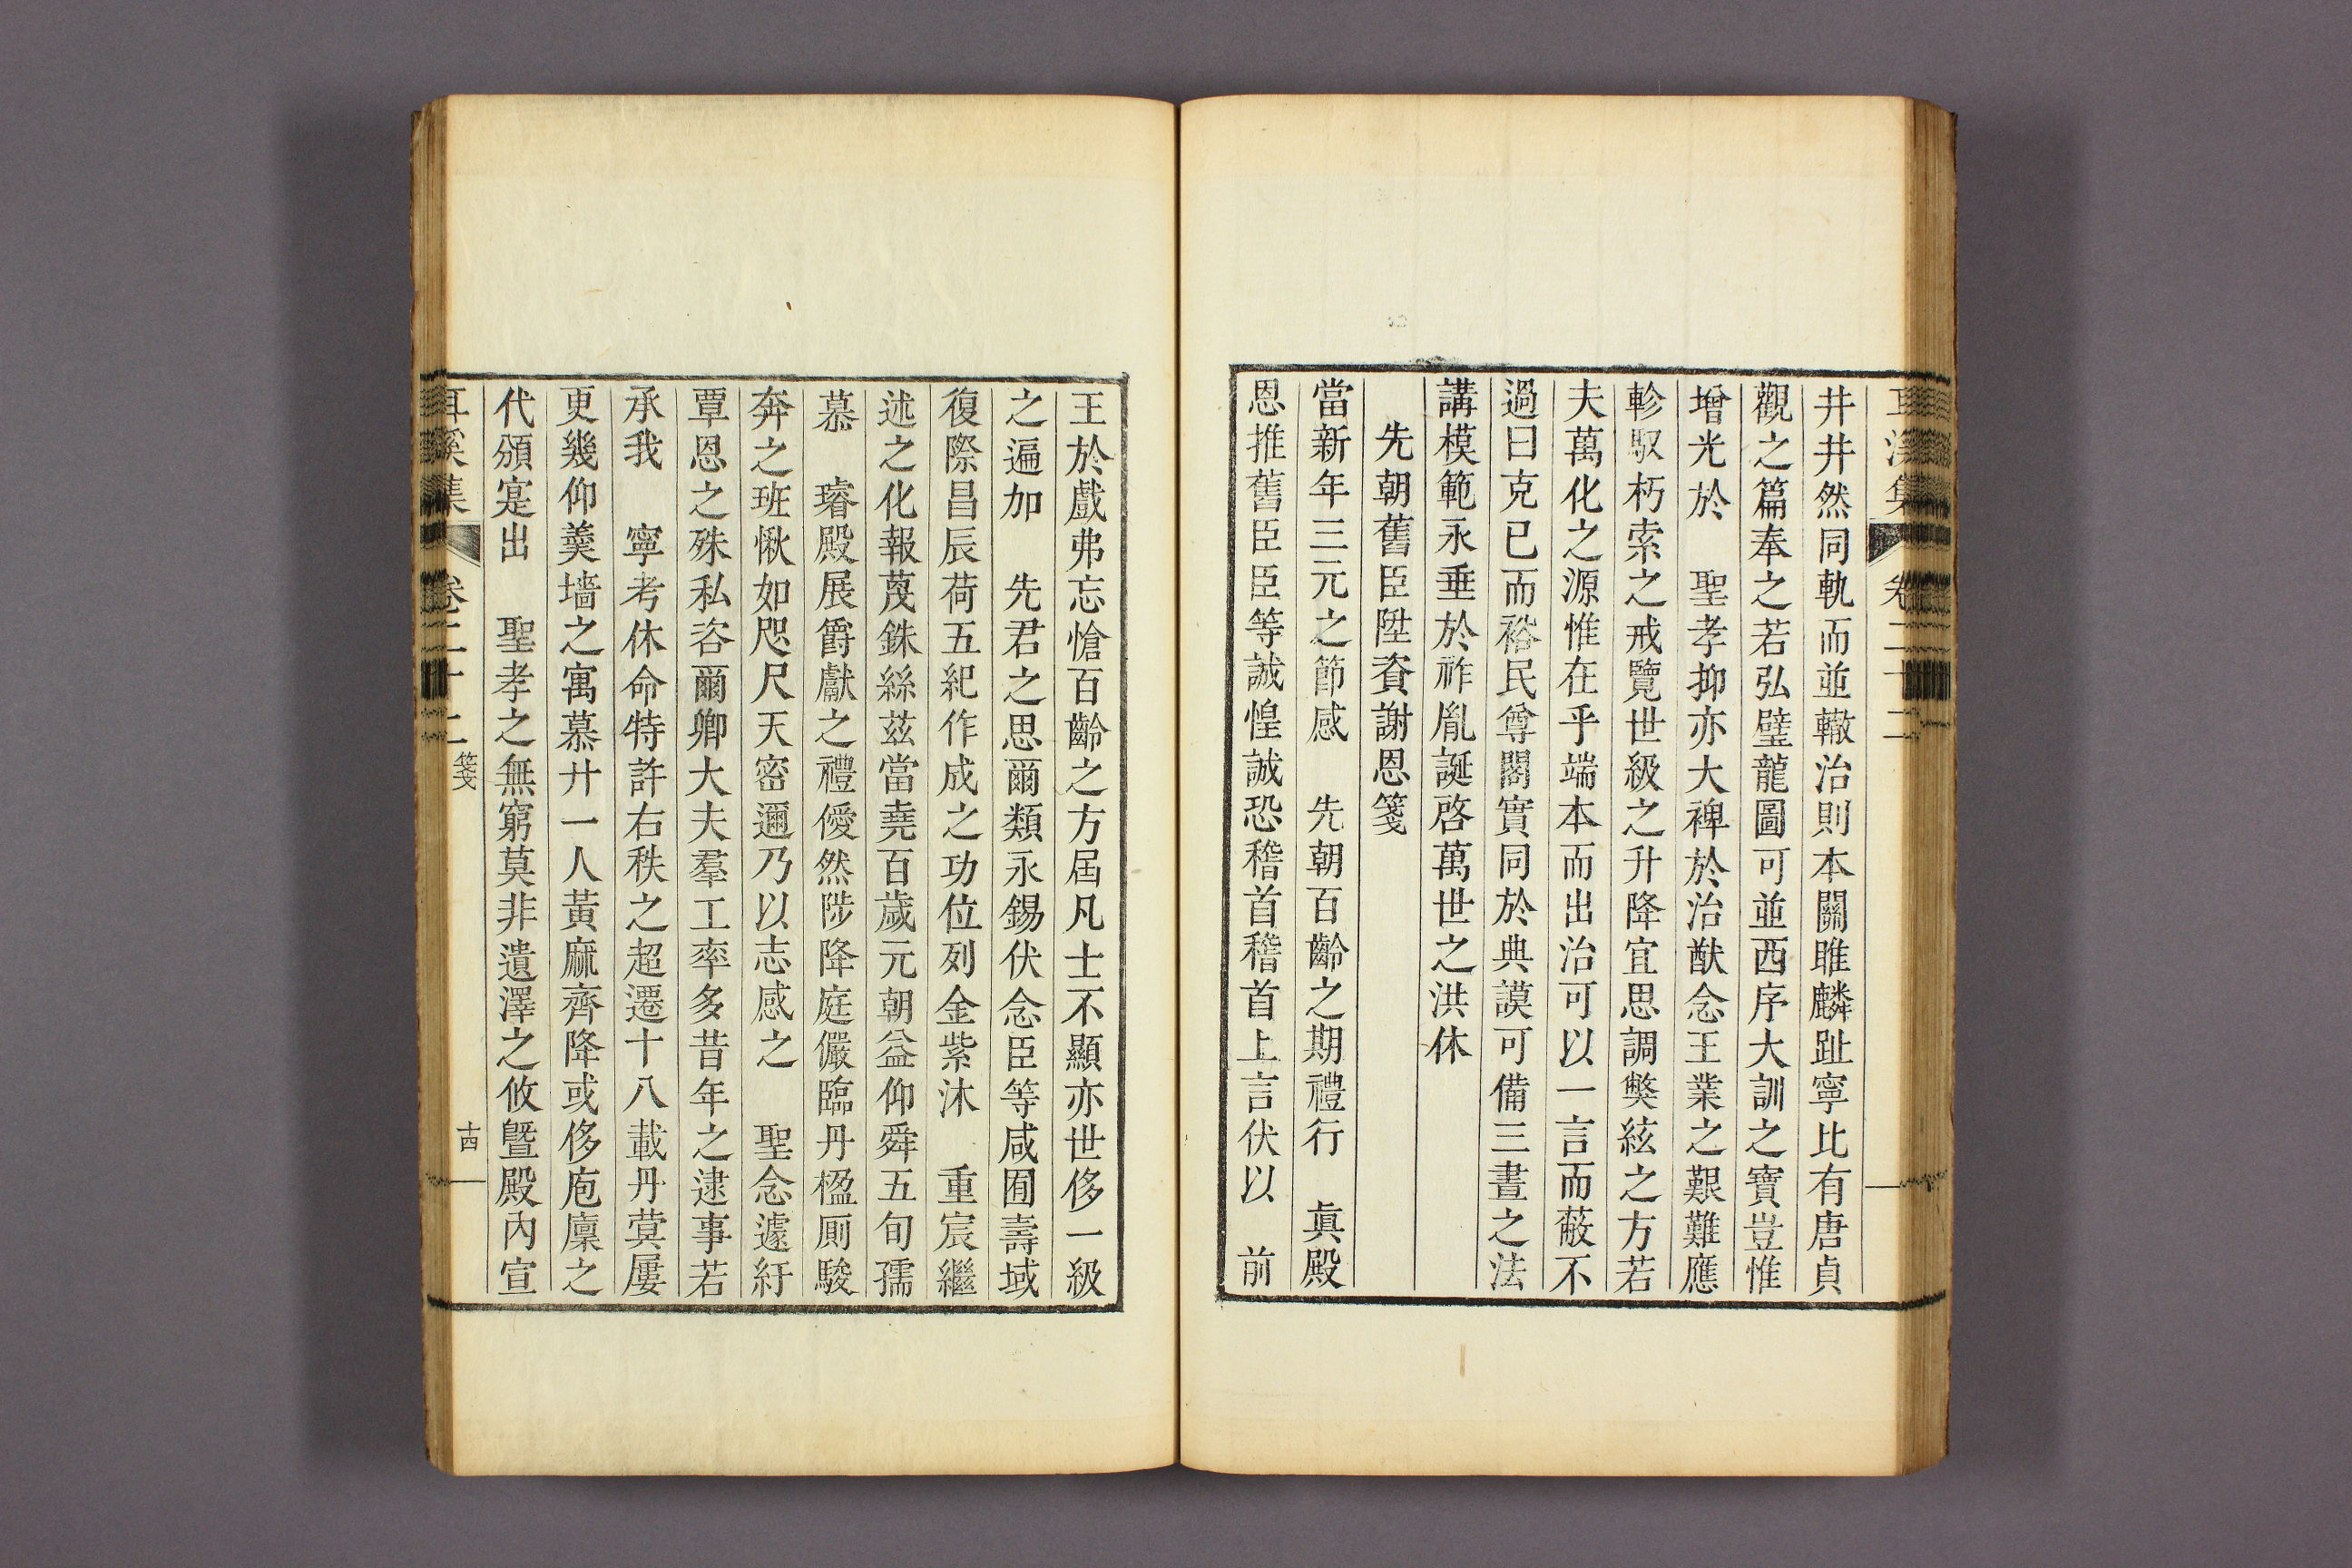 耳溪集 卷二十二
井井然同軌而並轍治則本關雎麟趾寧比有唐貞
觀之篇奉之若弘璧龍圖可並西序大訓之寶豈惟
增光於 聖孝抑亦大裨於治猷念王業之艱難應
軫馭朽索之戒覽世級之升降宜思調弊絃之方若
夫萬化之源惟在乎端本而出治可以一言而蔽不
過曰克已而裕民尊閣實同於典謨可備三晝之法
講模範永垂於祚胤誕啓萬世之洪休
先朝舊臣陞資謝恩箋
當新年三元之節感 先朝百齡之期禮行 眞殿
恩推舊臣臣等誠惶誠恐稽首稽首上言伏以 前
王於戲弗忘愴百齡之方屆凡士不顯亦世侈一級
之遍加 先君之思爾類永錫伏念臣等咸囿壽域
復際昌辰荷五紀作成之功位列金紫沐 重宸繼
述之化報蔑銖絲茲當堯百歲元朝益仰舜五旬孺
慕 璿殿展爵獻之禮僾然陟降庭儼臨丹楹厠駿
奔之班愀如咫尺天密邇乃以志感之 聖念遽紆
覃恩之殊私咨爾卿大夫羣工率多昔年之逮事若
承我 寧考休命特許右秩之超遷十八載丹蓂屢
更幾仰羹墻之寓慕廾一人黃麻齊降或侈庖廩之
代頒寔出 聖孝之無窮莫非遺澤之攸曁殿內宣
耳溪集 卷二十二 箋 十四